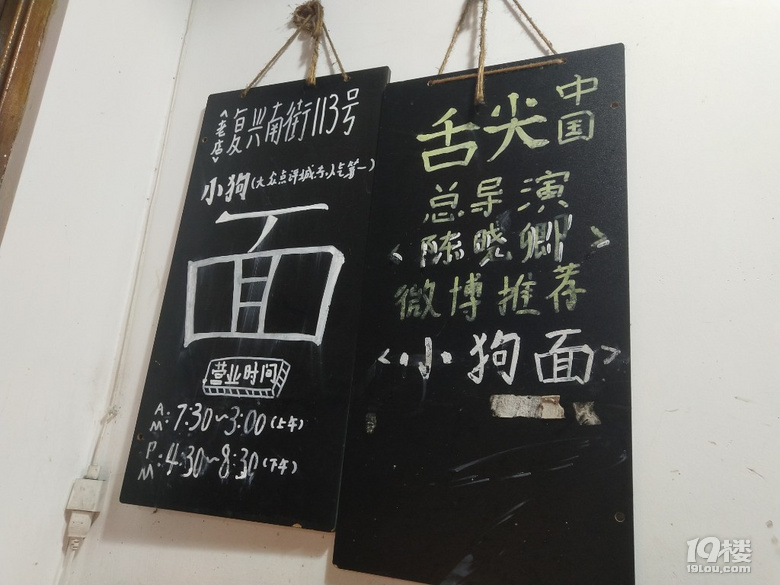 <老店>复兴南街113号
小狗(大众点评城市人气第一)
面
营业时间
AM: 7:30~3:00(上午)
PM: 4:30~8:30(下午)
舌尖中国
总导演
<陈晓卿>
微博推荐
<小狗面>
19楼
19lou.com